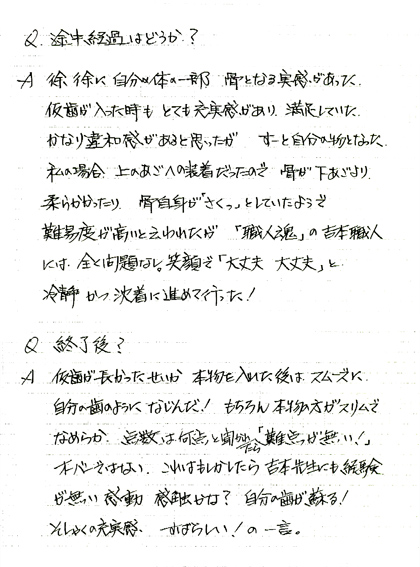 Q. 途中経過はどうか？
A 徐々に自分の体の一部 骨となる実感があった。
仮歯が入った時も とても充実感があり 満足していた。
かなり違和感があると思ったが すーと自分の物となった。
私の場合 上のあごへの装着だったので 骨が下あごより
柔らかかったり 骨自身が「さくっ」としていたようで
難易度が高いと云われたが 「職人魂」の吉本職人
には 全く問題なし。笑顔で「大丈夫 大丈夫」と
冷静かつ沈着に進めて行った！
Q 終了後？
A 仮歯が長かったせいか 本物を入れた後は スムーズに
自分の歯のように なじんだ！ もちろん 本物の方がスリムで
なめらか。点数は何点と聞かれたら「難点が無い！」
オーバーではない。これはもしかしたら 吉本先生にも経験
が無い感動 感触かな？ 自分の歯が蘇る！
そしゃくの充実感、すばらしい！の一言。